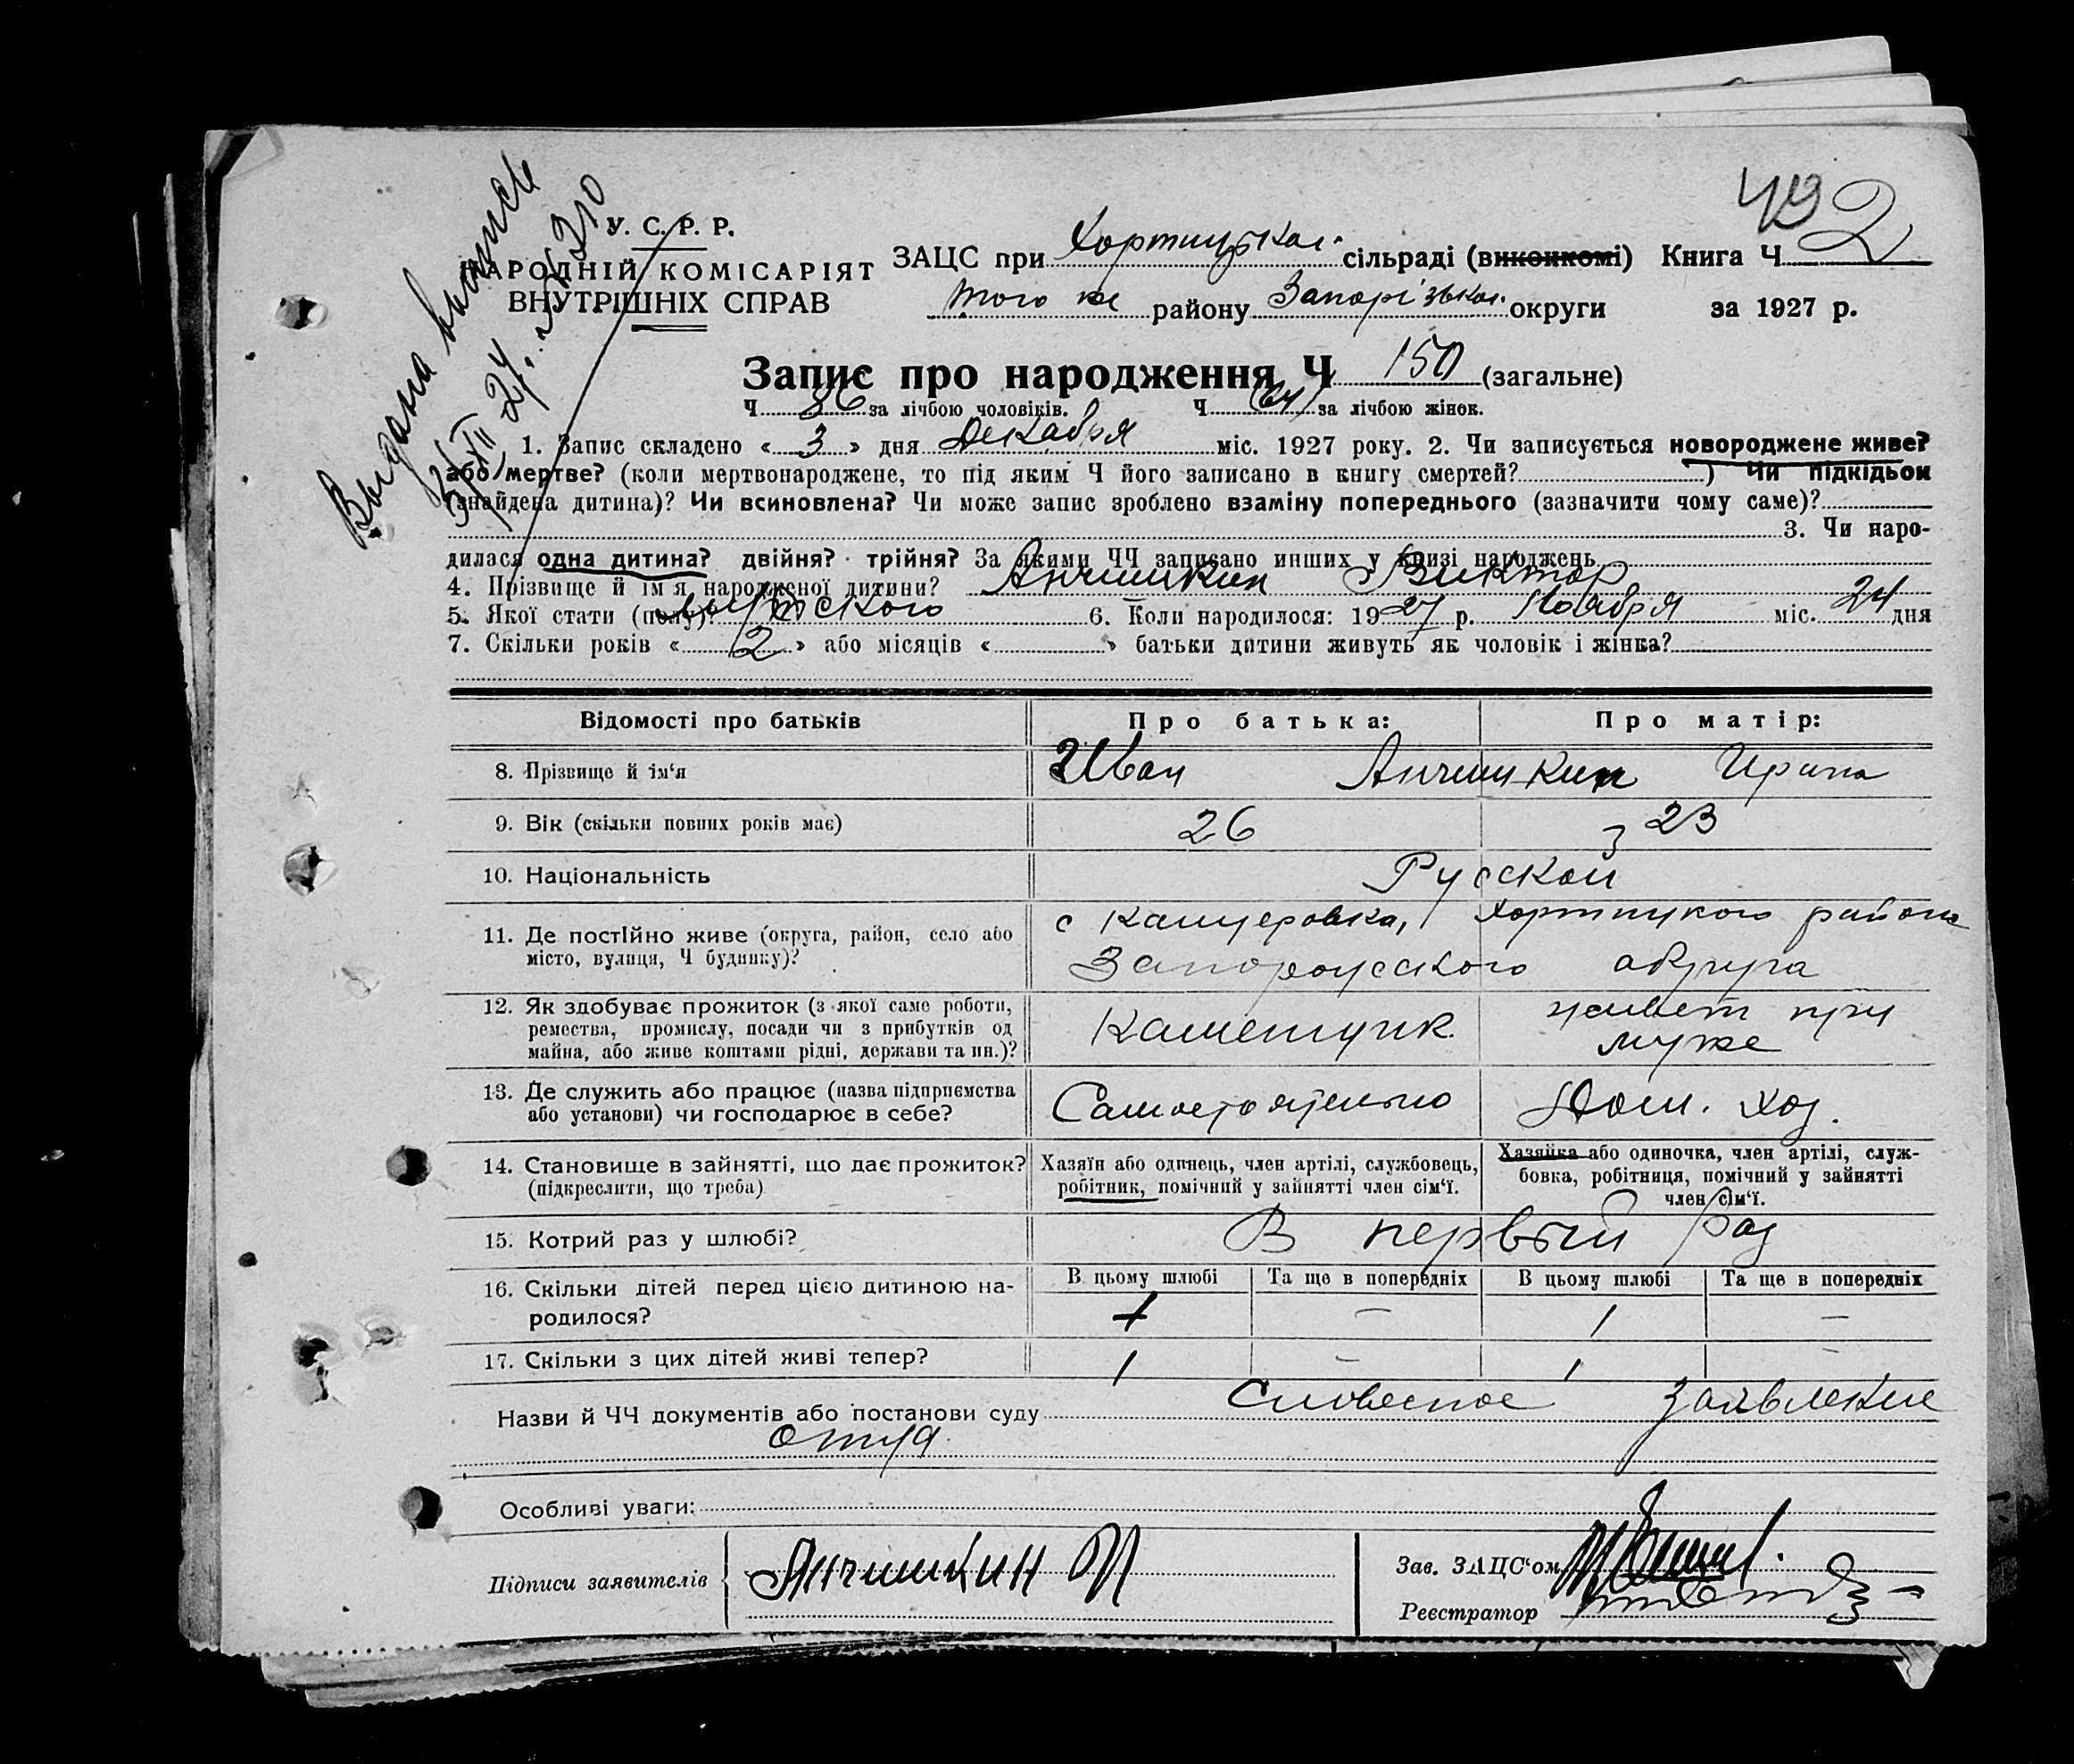 Выдана выпись
492
У. С. Р. Р.
НАРОДНІЙ КОМІСАРІЯТ
ВНУТРІШНІХ СПРАВ
ЗАЦС при Хортицькой сільраді (виконкомі) Книга Ч 2
того же району Запорізькой округи за 1927 р.
Запис про народження Ч 150 (загальне)
Ч 86 за лічбою чоловіків. Ч (64) за лічбою жінок.
1. Запис складено « 3 » дня Декабря міс. 1927 року. 2. Чи записується новороджене живе?
або мертве? (коли мертвонароджене, то під яким Ч його записано в книгу смертей? ) Чи підкідьок
(знайдена дитина)? Чи всиновлена? Чи може запис зроблено взаміну попереднього (зазначити чому саме)?
3. Чи наро-
дилася одна дитина? двійня? трійня? За якими ЧЧ записано инших у книзі народжень
4. Прізвище й ім'я народженої дитини? Анчишкин Виктор
5. Якої стати (полу)? мужского 6. Коли народилося: 1927 р. Ноября міс. 24 дня
7. Скільки років « 2 » або місяців « » батьки дитини живуть як чоловік і жінка?
Відомості про батьків Про батька: Про матір:
8. Прізвище й ім'я Иван Анчишкин Ирина
9. Вік (скільки повних років має) 26 23
10. Національність Русской
11. Де постійно живе (округа, район, село або с Канцеровка, Хортицкого района
місто, вулиця, Ч будинку)? Запорожского округа
12. Як здобуває прожиток (з якої саме роботи,
ремества, промислу, посади чи з прибутків од Каменщик живет при
майна, або живе коштами рідні, держави та ин.)? муже
13. Де служить або працює (назва підприємства
або установи) чи господарює в себе? Самостоятельно Дом. хоз.
14. Становище в зайнятті, що дає прожиток? Хазяїн або одинець, член артілі, службовець, Хазяйка або одиночка, член артілі, служ-
(підкреслити, що треба) робітник, помічний у зайнятті член сім'ї. бовка, робітниця, помічний у зайнятті
член сім'ї.
15. Котрий раз у шлюбі? В первый раз
16. Скільки дітей перед цією дитиною на- В цьому шлюбі Та ще в попередніх В цьому шлюбі Та ще в попередніх
родилося? 1 — 1 —
17. Скільки з цих дітей живі тепер? 1 — 1 —
Назви й ЧЧ документів або постанови суду Словесное заявление
отца
Особливі уваги:
Підписи заявителів Анчишкин И
Зав. ЗАЦС'ом
Реєстратор